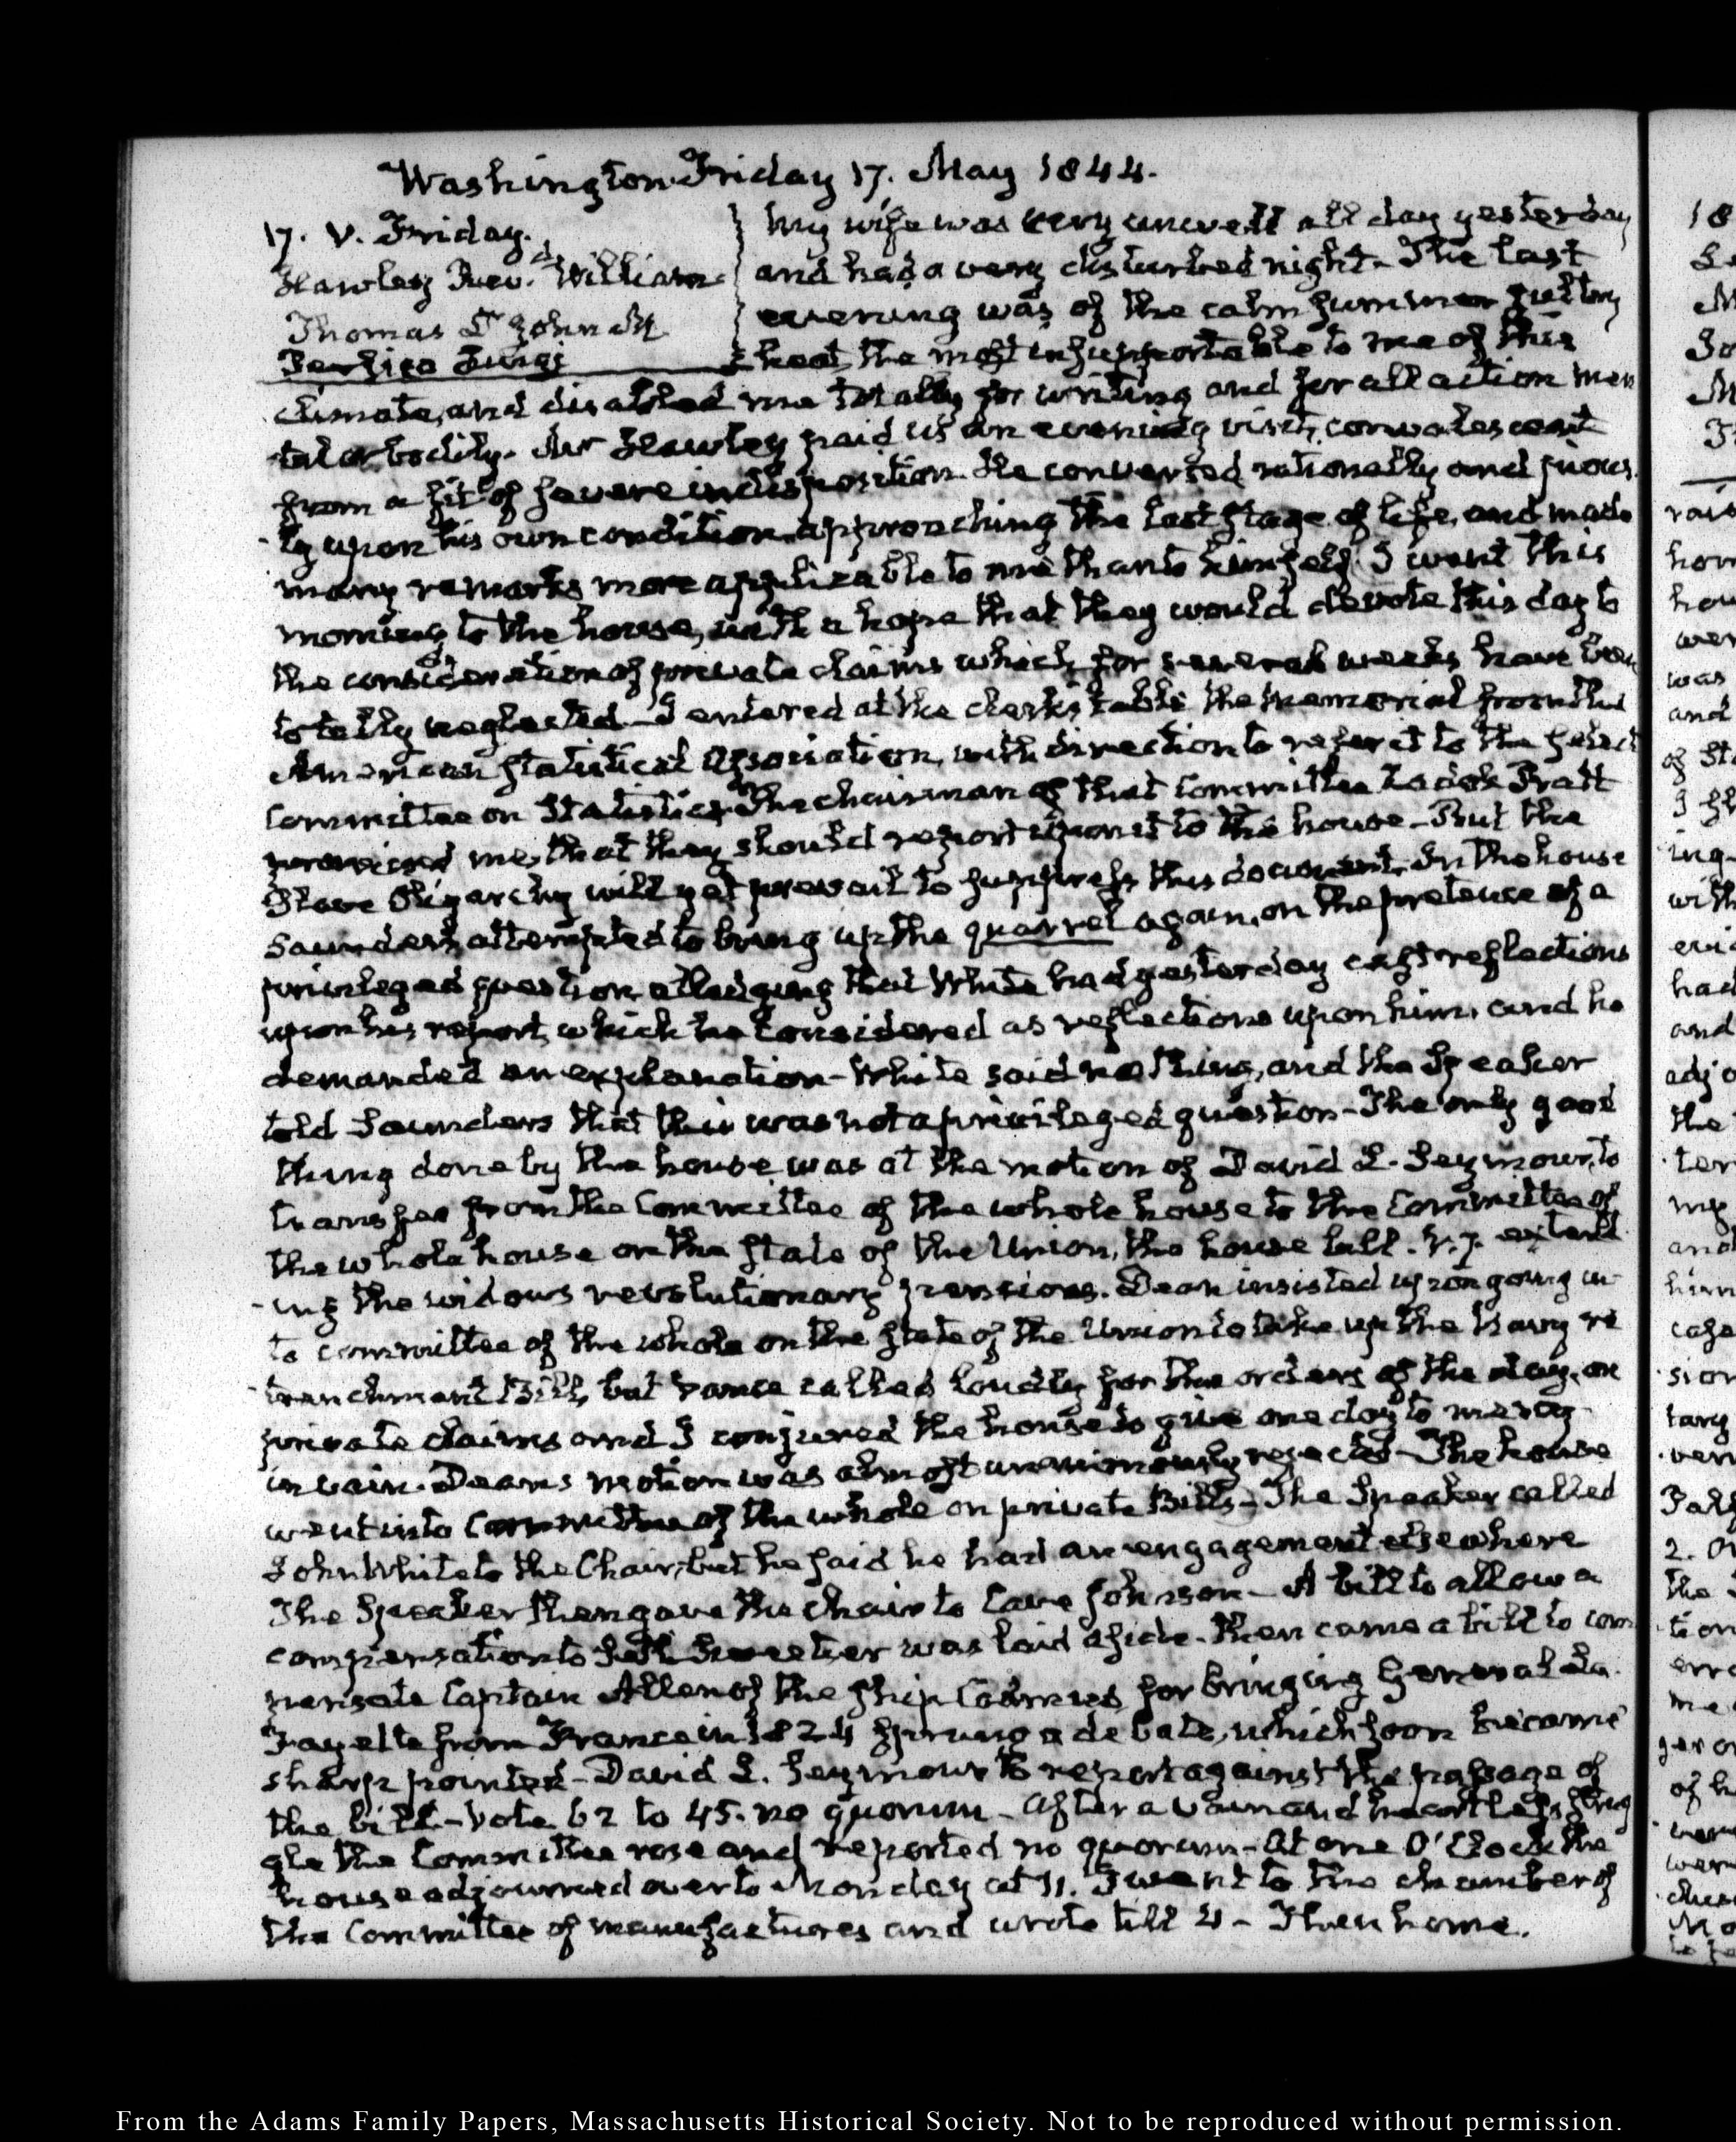 Washington Friday 17. May 1844.
17. V. Friday.
Hawley Revd. William
Thomas D John M
My wife was very unwell all day yesterday
and had a very disturbed night. The last
evening was of the calm summer sultry
heat, the most insupportable to me of this
climate, and disabled me totally for writing and for all action men
tal or bodily. Mr Hawley paid us an evening visit, convalescent
from a fit of severe indisposition. He conversed rationally and pious-
-ly upon his own condition, approaching the last stage of life, and made
many remarks more applicable to me than to himself. I went this
morning to the house, with a hope that they would devote this day to
the consideration of private claims which for several weeks have been
totally neglected. I entered at the clerk's table the memorial from the
American statistical association, with direction to refer it to the select
Committee on Statistics. The chairman of that Committee Zadok Pratt
promised me, that they should report upon it to the house. But the
Slave Oligarchy will yet prevail to suppress this document. In the house
Saunders attempted to bring up the quarrel again, on the pretence of a
privileged question alledging that White had yesterday cast reflections
upon his report, which he considered as reflections upon him, and he
demanded an explanation - White said nothing, and the Speaker
told Saunders that this was not a privileged question - The only good
thing done by the house was at the motion of David L. Seymour, to
transfer from the Committee of the whole house to the Committee of
the whole house on the state of the Union, the house bill. extend
-ing the widows revolutionary pensions. Dean insisted upon going in-
to committee of the whole on the state of the Union to take up the re
-trenchment Bill, but Vance called loudly for the orders of the day, on
private claims and I conjured the house to give one day to mercy
in vain. Dean's motion was almost unanimously rejected - The house
went into Committee of the whole on private Bills - The Speaker called
John White to the Chair, but he said he had an engagement elsewhere
The Speaker then gave the chair to Cave Johnson - A bill to allow a
compensation to was laid aside. Then came a bill to com
pensate Captain Allen of the ship Cadmus, for bringing General La-
Fayette from France in 1824 sprung a debate, which soon became
sharp pointed - David L. Seymour to report against the passage of
the bill - Vote 62 to 45. no quorum - After a vain and heartless strug
gle the Committee rose and reported no quorum - At one O'Clock the
house adjourned over to Monday at 11. I went to the chamber of
the Committee of manufactures and wrote till 4 - Then home.
From the Adams Family Papers, Massachusetts Historical Society. Not to be reproduced without permission.